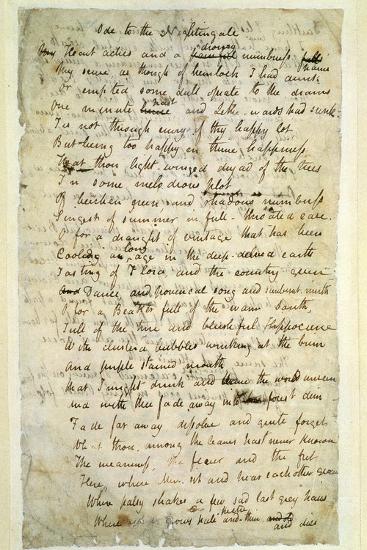 Ode to the Nightingale
My Heart aches and a drowsy numbness pains
My sense as though of hemlock I had drunk
Or emptied some dull opiate to the drains
One minute past and Lethe-wards had sunk
Tis not through envy of thy happy lot
But being too happy in thine happiness
That thou light-winged dryad of the trees
In some melodious plot
Of beechen green and shadows numberless
Singest of summer in full-throated ease.
O for a draught of vintage that has been
Cooling an age in the deep-delved earth
Tasting of Flora and the country green
And Dance and provencal song and sunburnt mirth
O for a Beaker full of the warm South,
Full of the true and blushful Hippocrene
With cluster'd bubbles winking at the brim
And purple stained mouth
That I might drink and leave the world unseen
And with thee fade away into forest dim
Fade far away dissolve and quite forget
What thou among the leaves hast never known
The weariness the fever and the fret
Here, where Men sit and hear each other groan
Where palsy shakes a few sad last grey hairs
Where youth grows pale and thin and dies